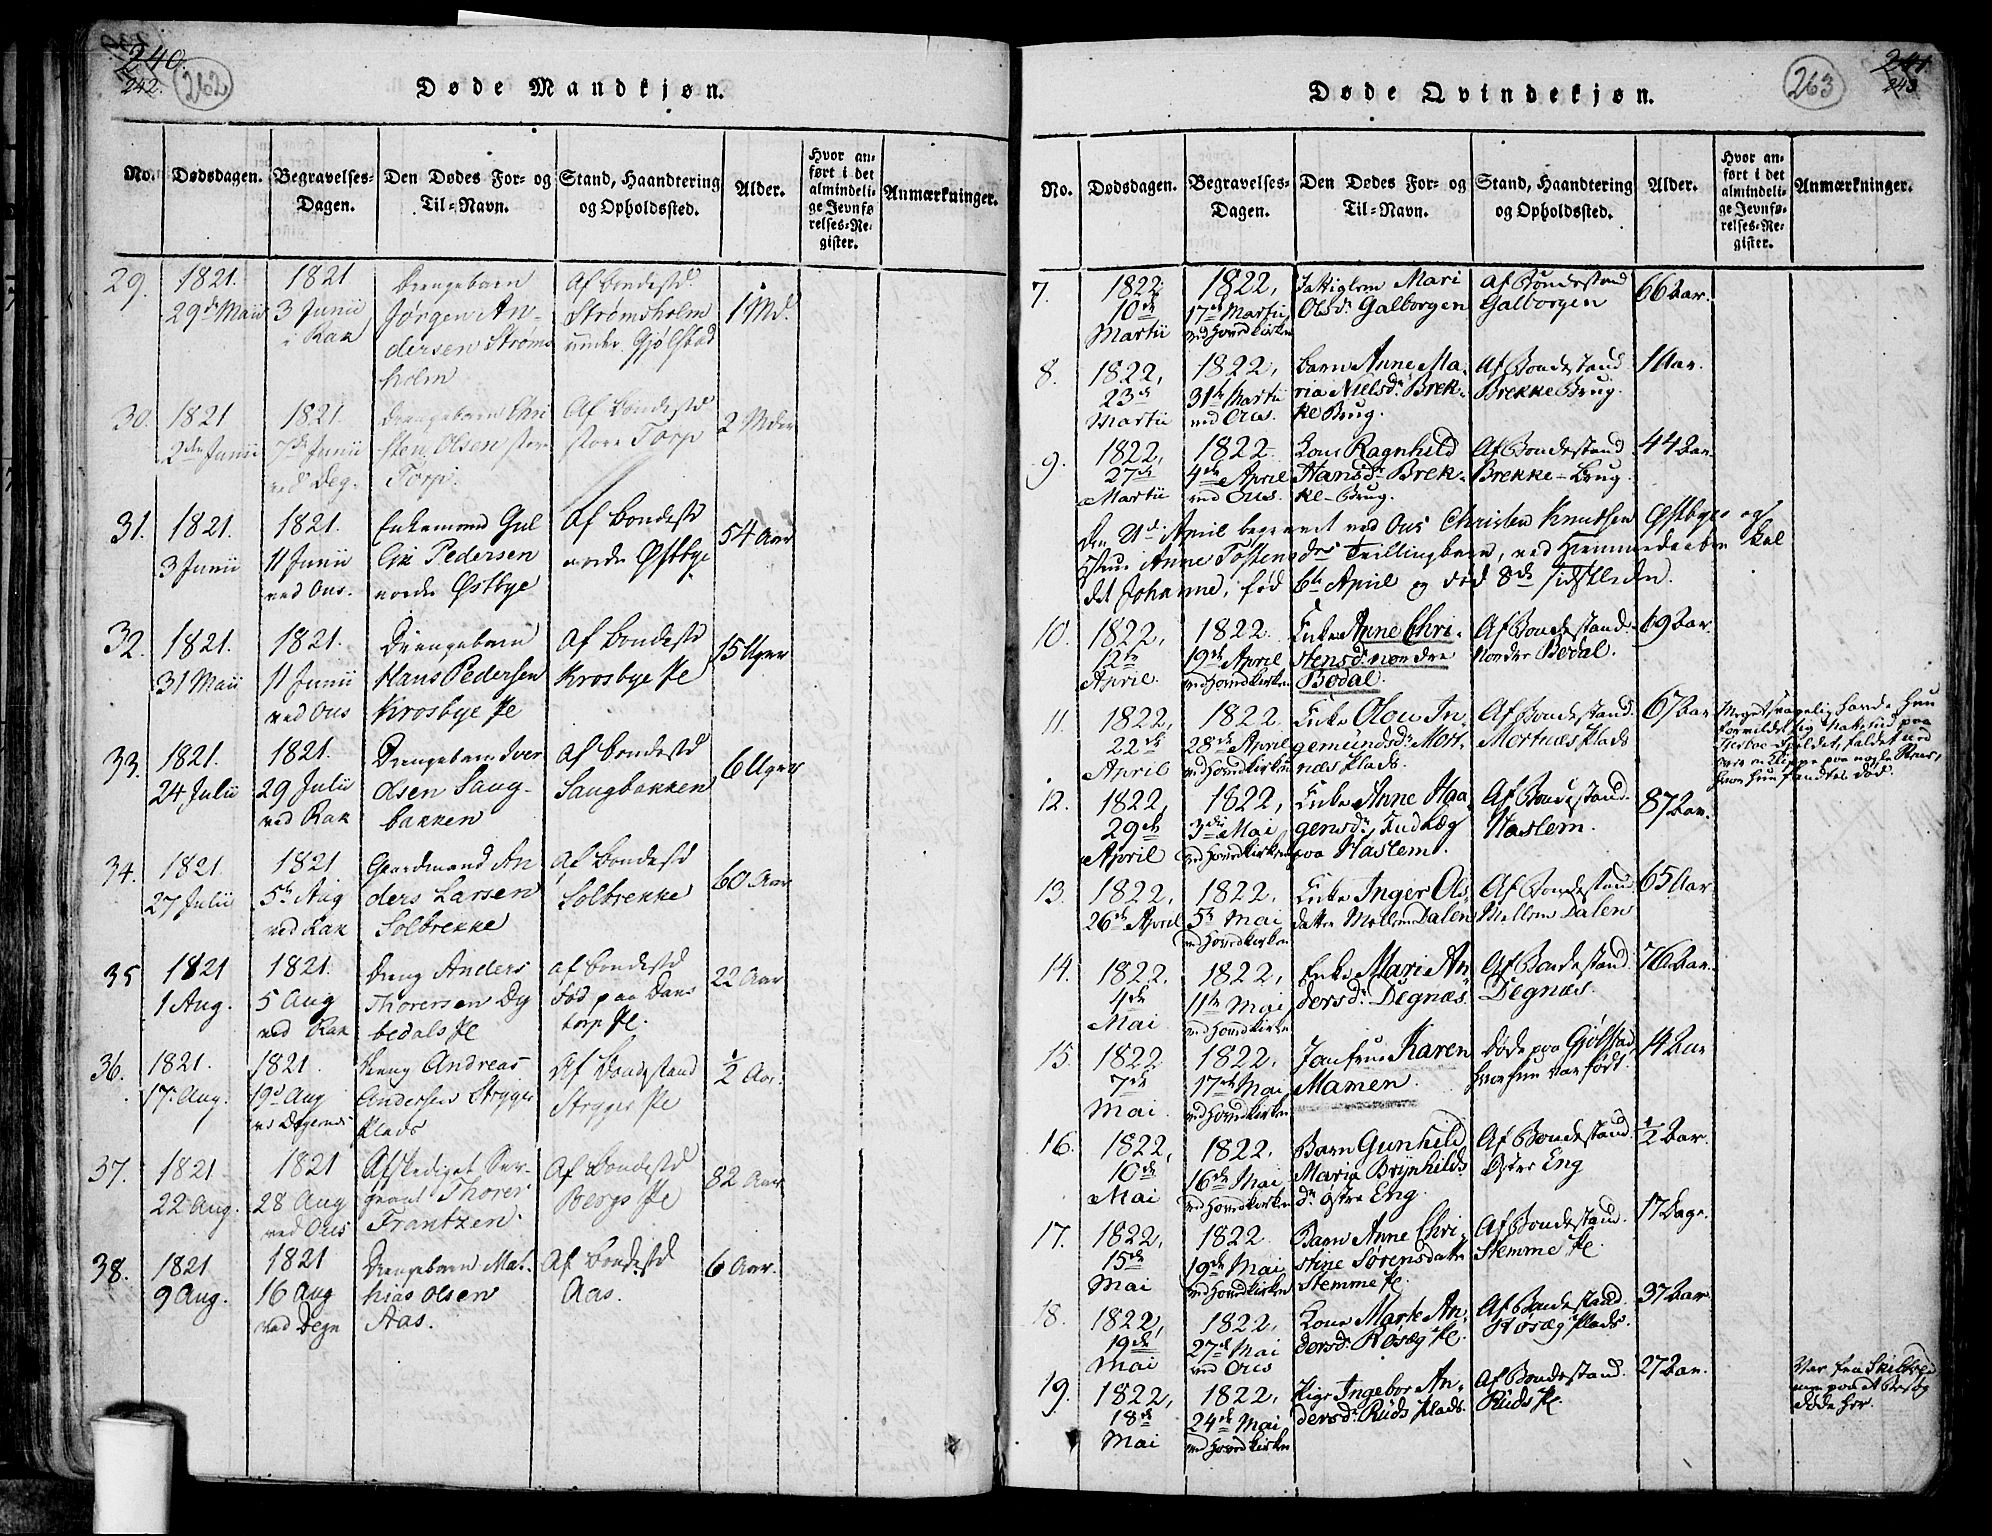 240.
242.
262
Døde Mandkjøn.
No.
Dødsdagen.
Begravelses-
Dagen.
Den Dødes For- og
Til-Navn.
Stand, Haandtering
og Opholdssted.
Alder.
Hvor an-
ført i det
almindeli-
ge Jevnfø
relses-Re-
gister.
Anmærkninger.
29.
1821.
29de Maii
1821
3 Junii
i Rak
Drengebarn
Jørgen An-
dersen Strøms
holm
Af bondestd
Strømsholm
under Gjølstad
1 Md.
30.
1821
2den Junii
1821.
7de Junii
ved Deg.
Drengebarn Chri
sten Olsen store
Torp.
Af bondestd
store Torp
2 Mdr
31.
1821.
3 Junii
1821.
11 Junii
ved Ous.
Enkemand Gul
Pedersen
nordre Østbye
Af bondestd
nordre Østbye
54 Aar
32.
1821.
31 Maii
1821.
11 Junii
ved Ous
Drengebarn
Hans Pedersen
Krosbye Pe
Af bondestd
Krosbye Pe
15 Uger
33.
1821.
24 Julii
1821.
29 Julii
ved Rak
Drengebarn Iver
Olsen Saug-
bakken
Af bondestd
Saugbakken
6 Uger
34.
1821.
27 Julii
1821.
5te Aug
ved Rak
Gaardmand An
ders Larsen
Solbrekke
Af bondestd
Solbrekke
60 Aar
35
1821
1 Aug.
1821.
5 Aug
ved Rak
Dreng Anders
Thorersen Dy
bedals Pe
af bondestd
fød paa Dans
torp Pe.
22 Aar
36.
1821.
17. Aug.
1821.
19d Aug
Dreng Andreas
Andersen Stryger
Plads
Af Bondestand
Stryger Pe
1/2 Aar.
37.
1821.
22 Aug.
1821
28 Aug
ved Ous
Afskediget Ser-
geant Thorer
Frantzen.
Af Bondestd
Bergs Pe
82 Aar
38.
1821
9 Aug.
1821
16 Aug
ved Degn
Drengebarn Mat-
hias Olsen
Aas.
Af bondestd
Aas.
6 Aar.
241
243
263
Døde Qvindekjøn.
No.
Dødsdagen.
Begravelses-
Dagen.
Den Dødes For- og
Til-Navn.
Stand, Haandtering
og Opholdssted.
Alder.
Hvor an-
ført i det
almindeli-
ge Jevnfø-
relses-Re-
gister.
Anmærkninger.
7.
1822,
10de
Martii
1822,
17de Martii,
ved Hovedkirken
Fattiglem Mari
Olsdr Galborgen
Af Bondestand
Galborgen
66 Aar.
8.
1822,
23de
Martii
1822,
31te Martii
ved Ous.
Barn Anne Ma-
ria Nielsdr Brek-
ke Brug.
Af Bondestand
Brekke Brug.
1 Aar.
9.
1822,
27de
Martii
1822
4de April
ved Ous.
Kone Ragnhild
Hansdr Brek-
ke-Brug.
Af Bondestand
Brekke-Brug.
44 Aar.
Den 21de April begravet ved Ous Christen Knudsen Østbyes og
Hstru Anne Tostensdrs Tvillingbarn, ved Hjemmedaaben kal
det Johanne, fød 6te April og død 8de sidstleden.
10.
1822,
12te
April.
1822.
19de April
ved Hovedkirken
Enke Anne Chri-
stensdr nordre
Bødal.
Af Bondestand.
nordre Bødal.
69 Aar.
11.
1822,
22de
April
1822.
28de April
ved Hovedkirken
Enke Olou In-
gemundsdr Mort-
næs Plads.
Af Bondestand.
Mortnæs Plads
67 Aar
Meget svagelig havde hun
forvildet sig Nattetid paa
fjeldet, faldet ned
over en Klippe paa nogle Stene,
hvor hun fandtes død.
12.
1822,
29de
April
1822,
3die Mai
ved Hovedkirken
Enke Anne Haa
gensdr, Indlæg
paa Haslem.
Af Bondestand.
Haslem.
87 Aar.
13.
1822,
26de April
1822.
5te Mai
ved Hovedkirken
Enke Inger Ols
datter Mellem Dalen
Af Bondestand
Mellem Dalen
65 Aar
14.
1822.
4de
Mai
1822,
11te Mai
ved Hovedkirken
Enke Mari An
dersdr Degnæs.
Af Bondestand.
Degnæs.
76 Aar.
15.
1822
7de
Mai
1822,
17de Mai
ved Hovedkirken
Jomfrue Karen
Mamen.
Døde paa Gjølstad,
hvor hun var født.
14 Aar
16.
1822,
10de
Mai
1822.
16de Mai
ved Hovedkirken
Barn Gunhild
Maria Brynhilds
dr østre Eng.
Af Bondestand.
Østre Eng
1/2 Aar.
17.
1822,
15de
Mai
1822.
19de Mai
ved Hovedkirken
Barn Anne Chri-
stine Sørensdatter
Stemme Pe.
Af Bondestand.
Stemme Pe.
17 Dage.
18.
1822,
19de
Mai
1822.
27de Mai
ved Ous
Kone Marte An-
dersdr Rosæg Pe.
Af Bondestand.
Rosæg Plads.
37 Aar.
19.
1822,
18de
Mai
1822.
24de Mai
ved Hovedkirken
Pige Ingebor An-
dersdr Ruds Plads.
Af Bondestand.
Ruds Pe.
27 Aar.
Var fra
men paa et Besøg
døde her.